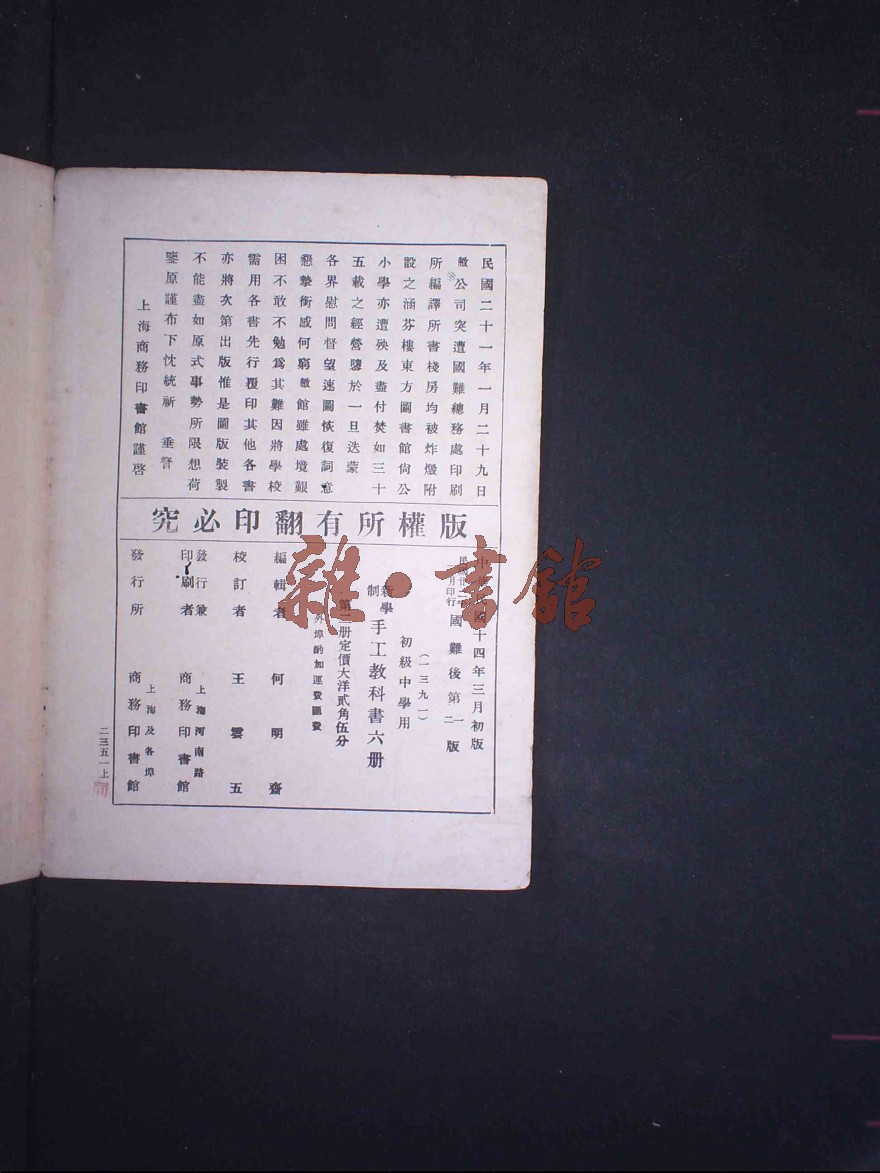 民國二十一年一月二十九日
敝公司突遭國難總務處印刷
所編譯所書棧房均被炸燬附
設之涵芬樓東方圖書館尚公
小學亦遭殃及盡付焚如三十
五載之經營隳於一旦迭蒙
各界慰問督望速圖恢復詞意
懇摯銜感何窮敝館雖處境艱
困不敢不勉爲其難因將學校
需用各書先行覆印其他各書
亦將次第出版惟是圖版裝製
不能盡如原式事勢所限想荷
鑒原謹布下忱統祈 垂詧
上海商務印書館謹啓
究必印翻有所權版
中華民國十四年三月初版
月印行 國難後第一版
二
(一三九一)
初級中學用
新學制手工教科書六册
第二册定價大洋貳角伍分
外埠酌加運費匯費
編輯者 何明齋
校訂者 王雲五
發行兼印刷者 上海河南路 商務印書館
發行所 上海及各埠 商務印書館
二三五一上
雜·書館